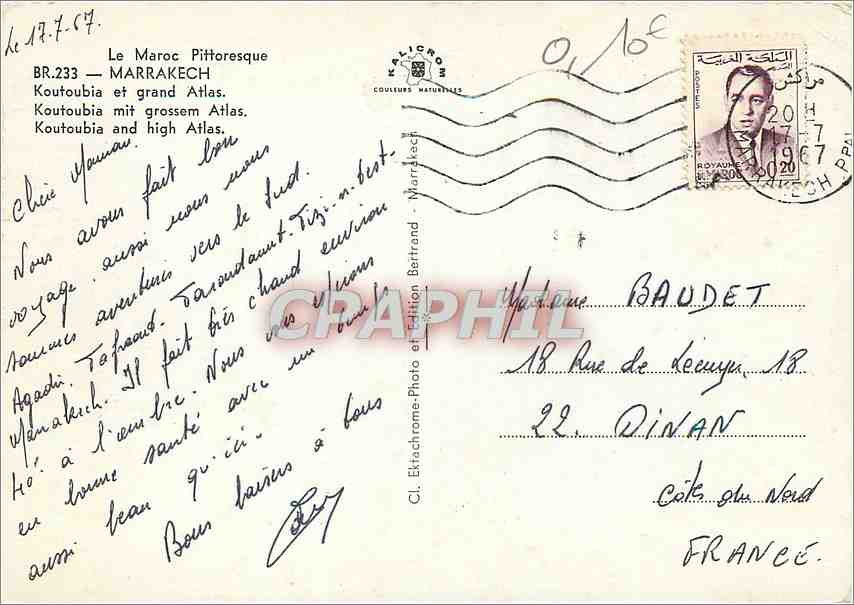 Le 17.7.67.
Le Maroc Pittoresque
BR.233 — MARRAKECH
Koutoubia et grand Atlas.
Koutoubia mit grossem Atlas.
Koutoubia and high Atlas.
KALICROM
COULEURS NATURELLES
0,10€
المملكة المغربية
POSTES
ROYAUME
DU MAROC 0.20
مراكش
20 H
17-7
1967
MARRAKECH PPAL
Chère Maman.
Nous avons fait bon
voyage aussi nous nous
sommes aventurés vers le Sud.
Agadir. Tafraout. Taroudannt. Tizi-n-Test-
Marrakech. Il fait très chaud environ
40° à l'ombre. Nous vous espérons
en bonne santé avec un temps
aussi beau qu'ici.
Bons baisers à tous
Cl. Ektachrome-Photo et Edition Bertrand - Marrakech
CPAPHIL
Madame BAUDET
18 Rue de Lécuyer, 18
22. DINAN
Côtes du Nord
FRANCE.